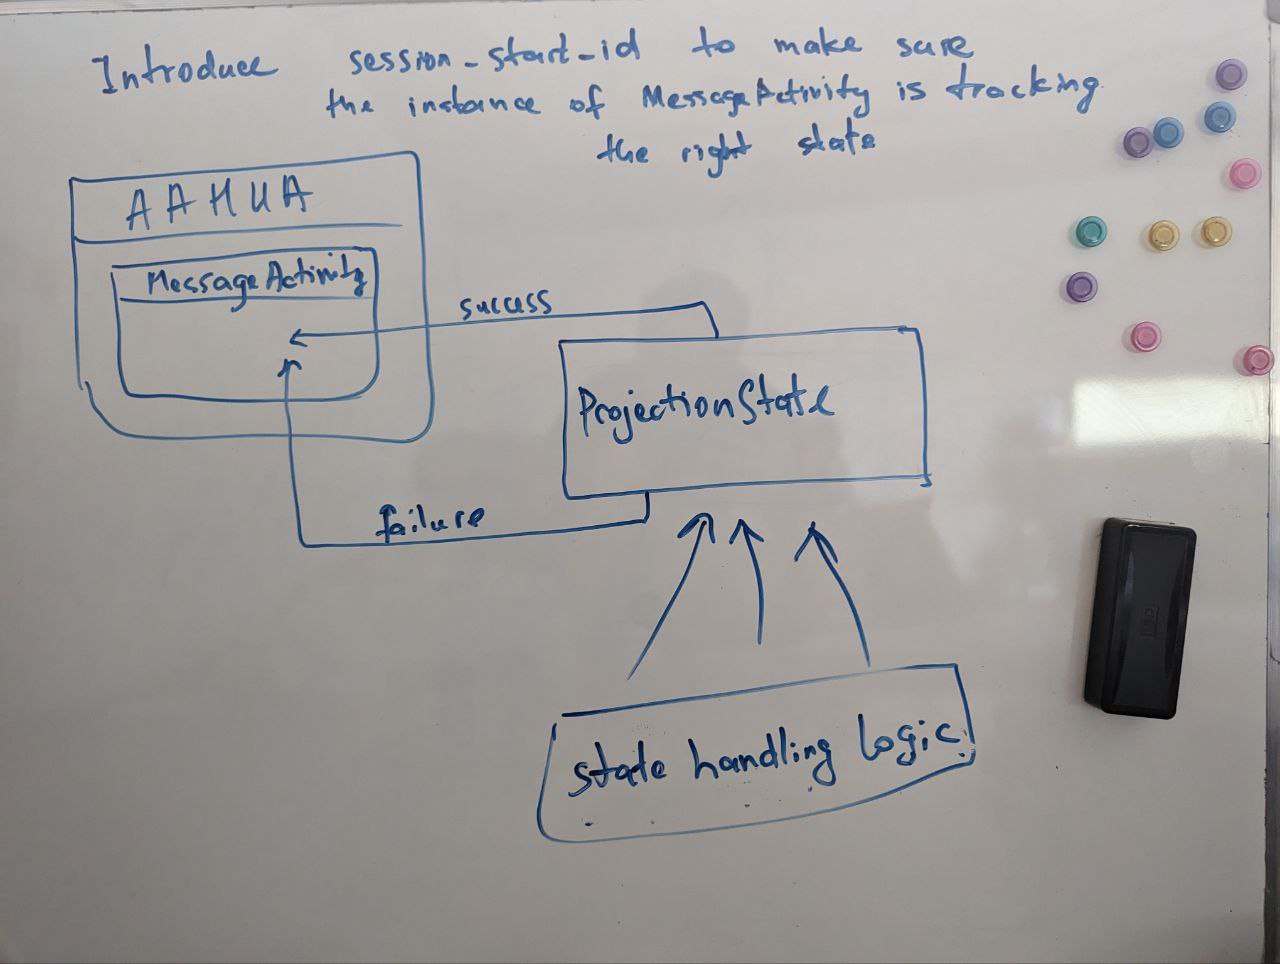 Introduce session_start_id to make sure
the instance of MessageActivity is tracking
the right state
AAHUA
MessageActivity
success
ProjectionState
failure
state handling logic